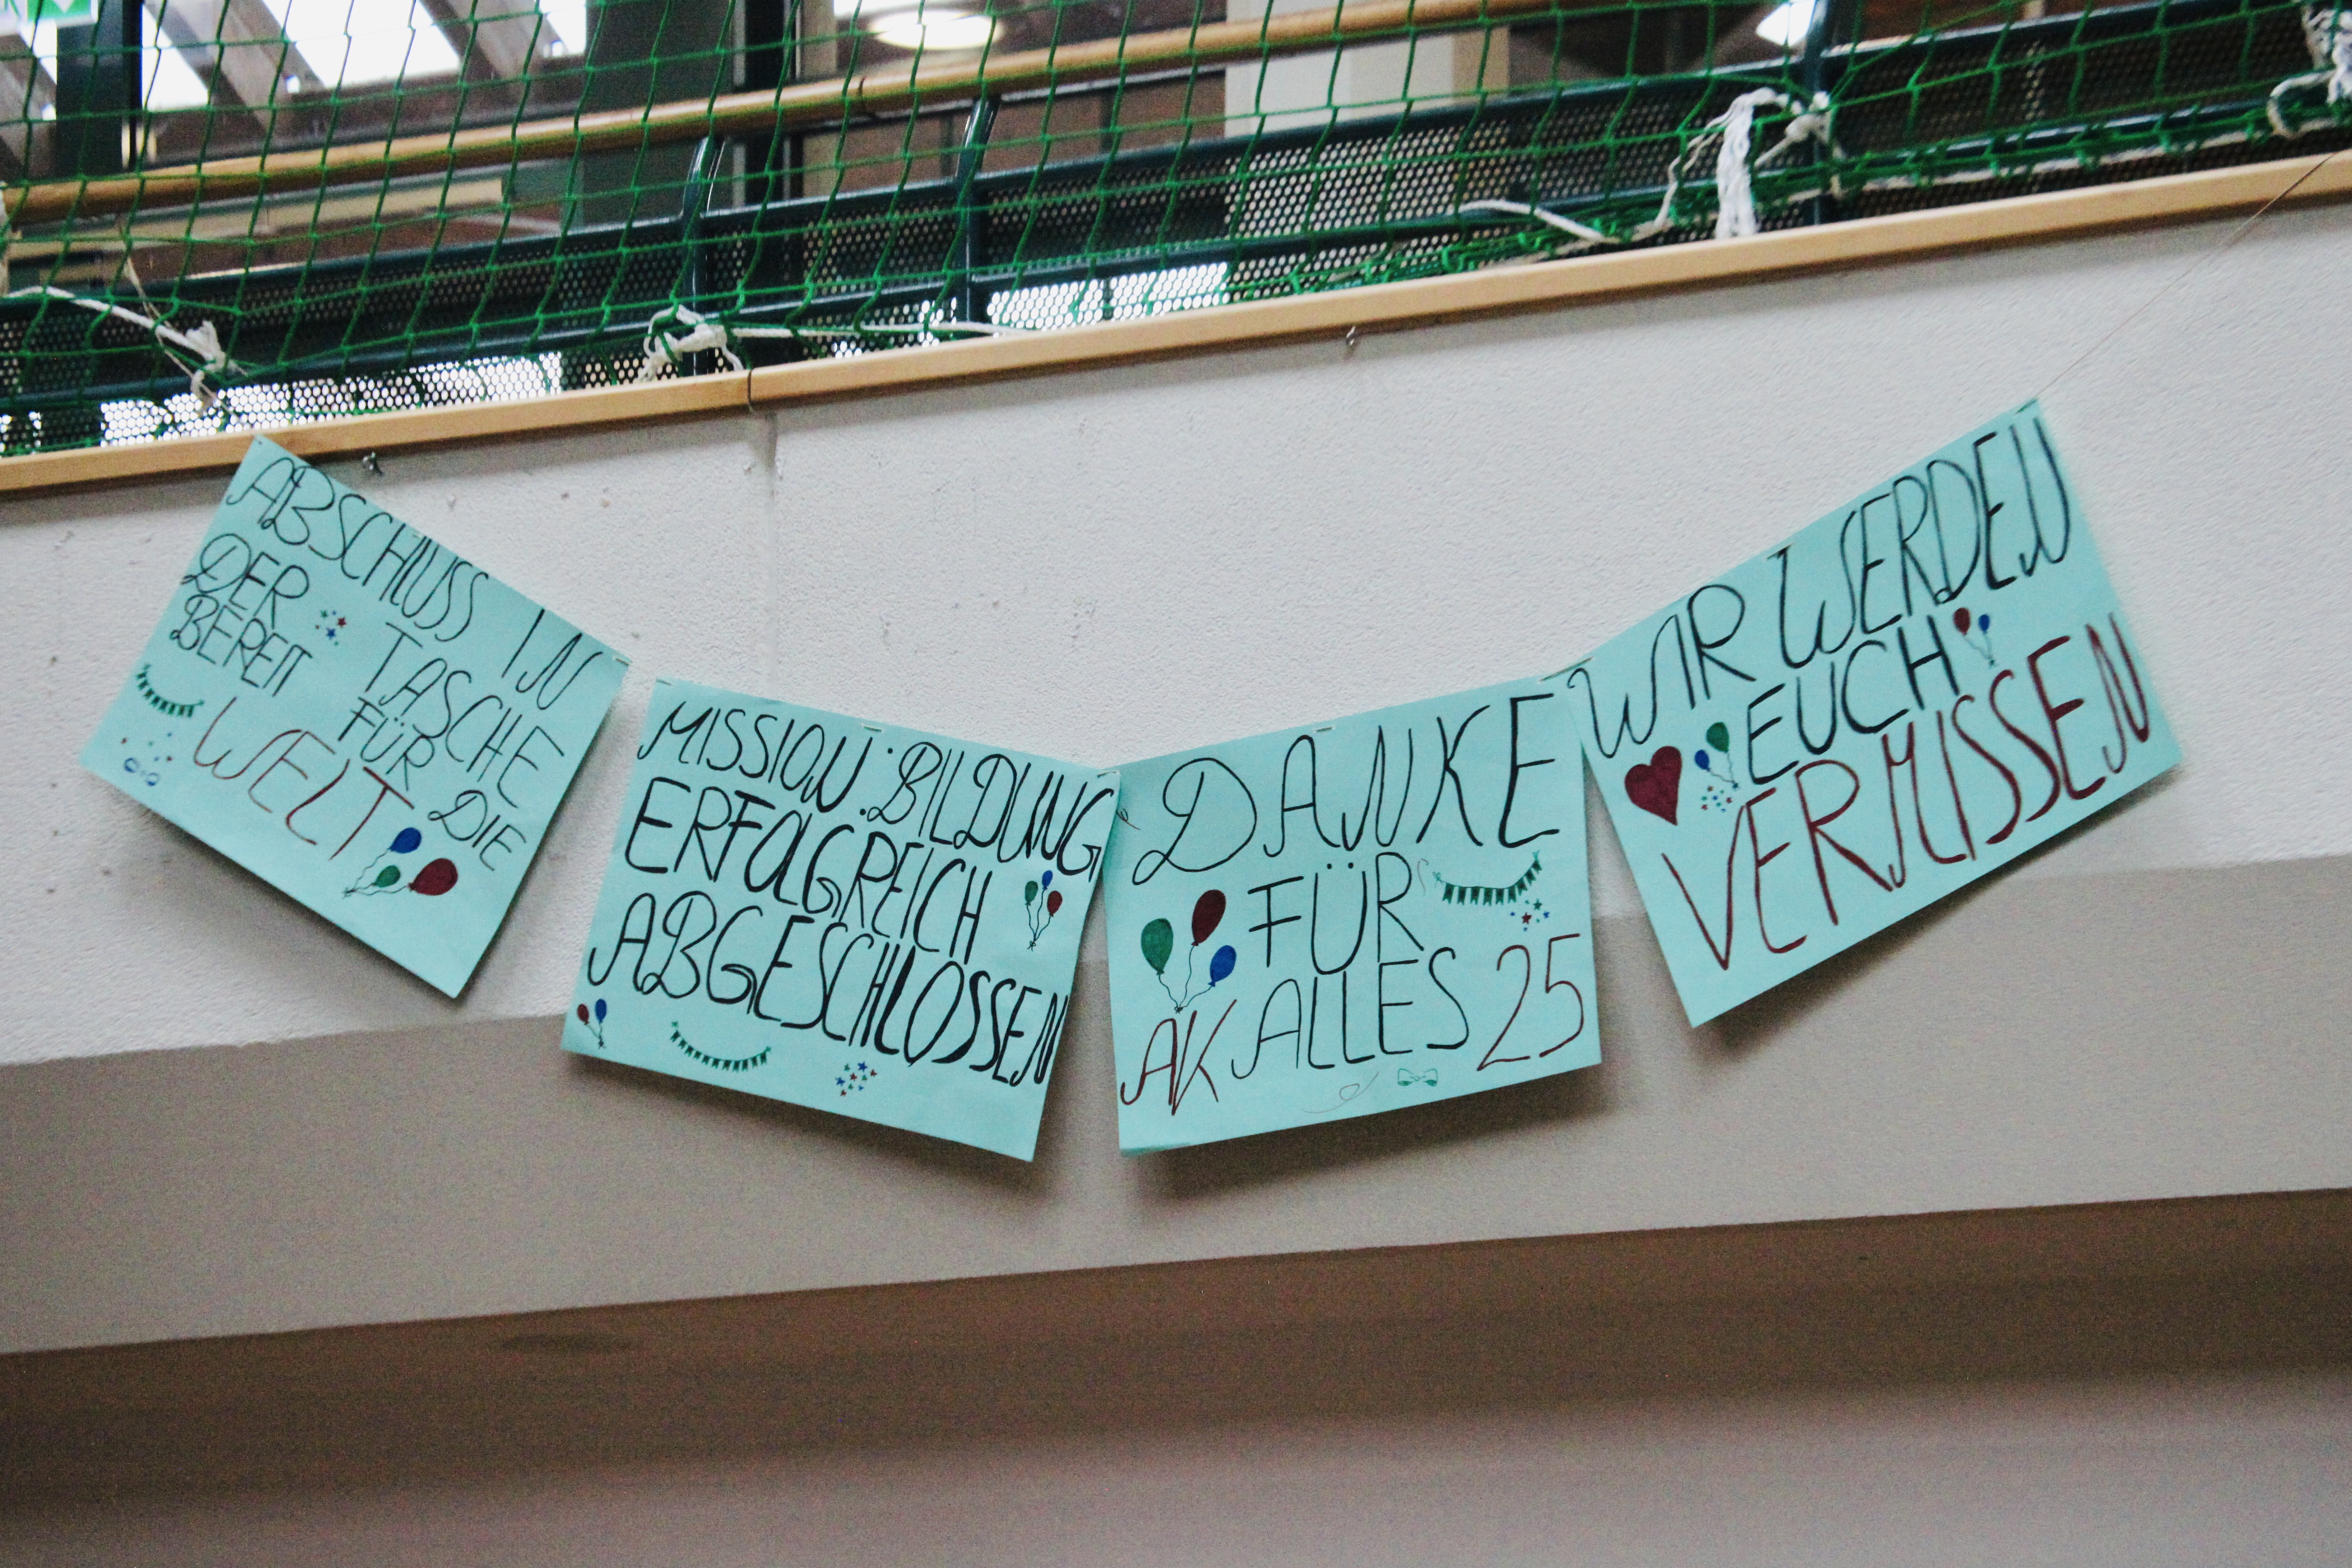 ABSCHLUSS IN
DER TASCHE
BEREIT FÜR DIE
WELT
MISSION: BILDUNG
ERFOLGREICH
ABGESCHLOSSEN
DANKE
FÜR
AK ALLES 25
WIR WERDEN
EUCH
VERMISSEN